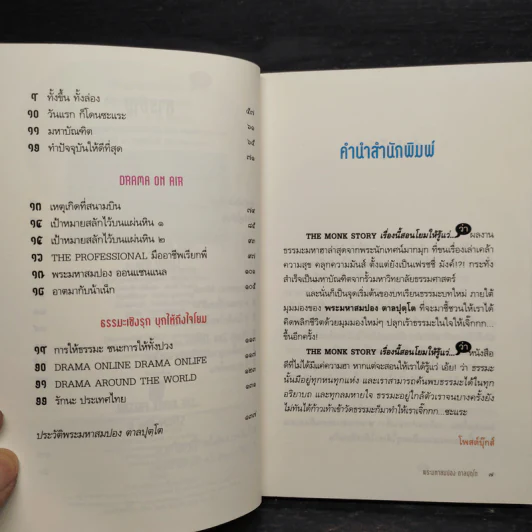 ๙ ทั้งขึ้น ทั้งล่อง ๕๓
๑๐ วันแรก ก็โดนซะแระ ๖๑
๑๑ มหาบัณฑิต ๖๕
๑๒ ทำปัจจุบันให้ดีที่สุด ๗๑
DRAMA ON AIR
๑๓ เหตุเกิดที่สนามบิน ๗๙
๑๔ เป้าหมายสลักไว้บนแผ่นหิน ๑ ๘๕
๑๕ เป้าหมายสลักไว้บนแผ่นหิน ๒ ๙๓
๑๖ THE PROFESSIONAL มืออาชีพเรียกพี่
๑๗ พระมหาสมปอง ออนแชนแนล ๑๐๕
๑๘ อาตมากับน้าเน็ก
ธรรมะเชิงรุก บุกให้ถึงใจโยม
๑๙ การให้ธรรมะ ชนะการให้ทั้งปวง
๒๐ DRAMA ONLINE DRAMA ONLIFE
๒๑ DRAMA AROUND THE WORLD
๒๒ รักนะ ประเทศไทย
ประวัติพระมหาสมปอง ตาลปุตฺโต
คำนำสำนักพิมพ์
THE MONK STORY เรื่องนี้สอนโยมให้รู้แว่... ว่า ผลงาน
ธรรมะมหาฮาล่าสุดจากพระนักเทศน์มากมุก ที่ขนเรื่องเล่าเคล้า
ความสุข คลุกความมันส์ ตั้งแต่ยังเป็นเฟรชชี่ มังค์!?! กระทั่ง
สำเร็จเป็นมหาบัณฑิตจากรั้วมหาวิทยาลัยธรรมศาสตร์
และนั่นก็เป็นจุดเริ่มต้นของบทเรียนธรรมะบทใหม่ ภายใต้
มุมมองของ พระมหาสมปอง ตาลปุตฺโต ที่จะมาชี้ชวนให้เราได้
คิดพลิกชีวิตด้วยมุมมองใหม่ๆ ปลุกเร้าธรรมะในใจให้เจิ๊กกก...
ขึ้นอีกครั้ง!
THE MONK STORY เรื่องนี้สอนโยมให้รู้แว่... ว่า หนังสือ
ดีที่ไม่ได้มีแค่ความฮา หากแต่จะสอนให้เราได้รู้แว่ เอ้ย! ว่า ธรรมะ
นั้นมีอยู่ทุกหนทุกแห่ง และเราสามารถค้นพบธรรมะได้ในทุก
อริยาบถ และทุกลมหายใจ ธรรมะอยู่ใกล้ตัวเราจนบางครั้งยัง
ไม่ทันได้ก้าวเท้าเข้าวัดธรรมะก็มาทำให้เราเจิ๊กกก...ซะแระ
โพสต์บุ๊กส์
พระมหาสมปอง ตาลปุตฺโต ๗